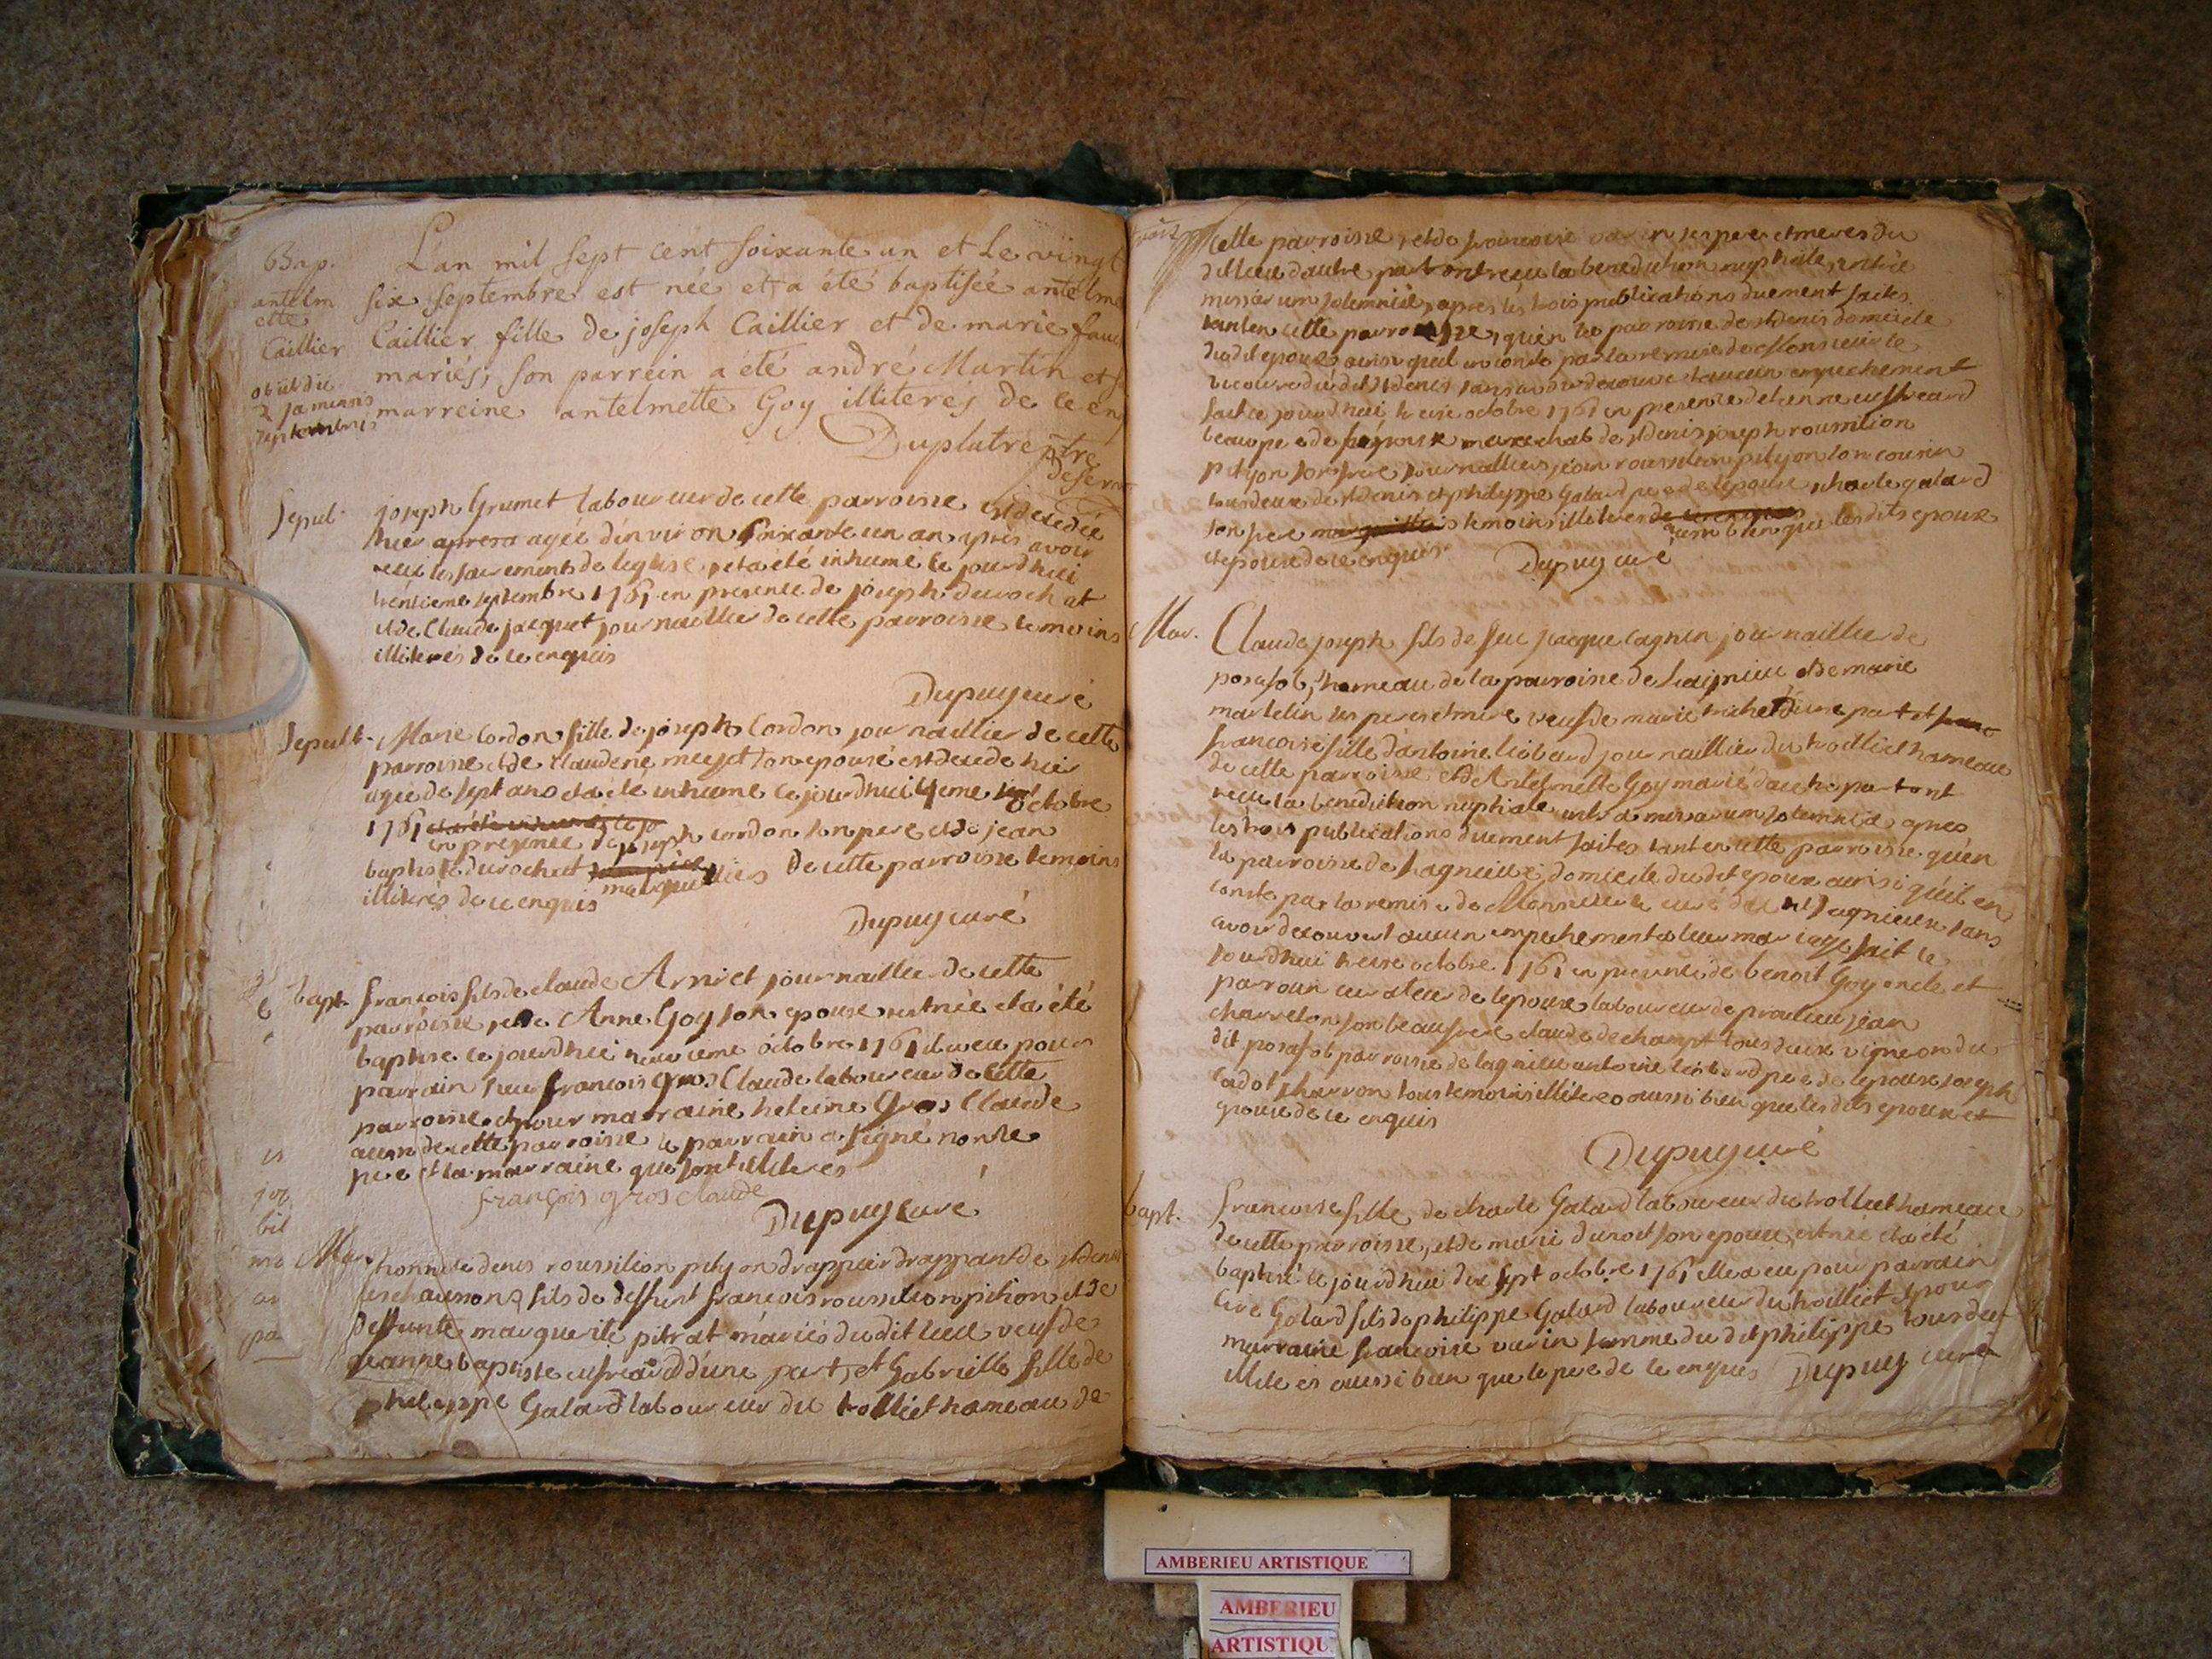 Bap.
antelm
ette
Caillier
obiit die
2 ja mensis
septembris
L'an mil sept cent soixante un et le vingt
six septembre est née et a été baptisée antelme
Caillier fille de joseph Caillier et de marie fau
mariés, son parrein a été andré Martin et s
marreine antelmette Goy illiterés de ce en
Duplutre ptre
deserv
Sepul.
joseph Grumet laboureur de cette parroisse est decedée
hier agée d'environ soixante un an apres avoir
receu les sacrements de leglise, et a été inhumé ce jourdhui
trentieme septembre 1761 en presence de joseph durochat
et de Claude jacquet journaillier de cette parroisse temoins
illiterés de ce enquis
Dupuy curé
Sepult.
Marie Cordon fille de joseph Cordon journaillier de cette
parroisse et de claudene son epouse est decede hier
agée de sept ans et a été inhumé ce jourdhui 4eme octobre
1761
en presence de joseph cordon son pere et de jean
baptiste durochat marguilliers de cette parroisse temoins
illiterés de ce enquis
Dupuy curé
bapt.
francois fils de claude Arnret journaillier de cette
parroisse, et de Anne Goy son epouse est née et a été
baptise ce jourdhui neuvieme octobre 1761 il a eu pour
parrain sieur francois gros Claude laboureur de cette
parroisse et pour marraine heleine Gros Claude
aussi de cette parroisse le parrain a signé non le
pere et la marraine qui sont illiteres
françois gros claude
Dupuy curé
Mar.
honnete denis roussilion pityon drappier drappant de st denis
en chausson fils de deffunt francois roussilion pithon et de
deffunte marguerite pitrat mariés dudit lieu veuf de
jeanne baptiste cusreard d'une part, et Gabrielle fille de
philippe Galard laboureur du trolliet hameau de
cette parroisse, et de francoise varin ses pere et meres du
dit lieu d'autre part ont receu la benediction nuptiale, intra
missarum solemnia, apres les trois publications duement faites
tant en cette parroisse, qu'en la parroisse de st denis domicile
dudit epoux ainsi quil en conste par la remise de Monsieur le
curé dudit st denis sans avoir decouvert aucun empechement
fait ce jourdhui treise octobre 1761 en presence de
beaupere de marechal de st denis joseph roussilion
pityon son frere journalliers, jean roussilion pityon son cousin
tous deux de st denis et philippe Galard pere de l'epouse, charle galard
son frere temoins illiteres
aussi bien que les dits epoux
et epouse de ce enquis
Dupuy curé
Mar.
Claude joseph fils de feu jacque cagnin journaillier de
posafol, hameau de la parroisse de Laignieu et de marie
martelin ses pere et mere veuf de marie trichet d'une part et
francoise fille d'antoine liobard journaillier du trolliet hameau
de cette parroisse et d'Antelmette Goy marié d'autre part ont
receu la benediction nuptiale intra missarum solemnia apres
les trois publications duement faites tant en cette parroisse qu'en
la parroisse de Lagnieux domicile dudit epoux ainsi quil en
conste par la remise de Monsieur le curé de Lagnieux sans
avoir decouvert aucun empechement a leur mariage fait ce
jourdhui treise octobre 1761 en presence de benoit Goy oncle et
parrain curateur de lepouse laboureur de proulieu jean
charreton son beaufrere claude dechampt tous deux vigneron du
dit posafol parroisse de lagnieu antoine liobard pere de lepouse joseph
cadot charron tous temoins illiteres aussi bien que les dits epoux et
epouse de ce enquis
Dupuy curé
bapt.
francoise fille de charle Galard laboureur du trolliet hameau
de cette parroisse, et de marie durost son epouse, est née et a été
baptisé ce jourdhui dix sept octobre 1761 elle a eu pour parrain
Galard fils de philippe Galard laboureur du trolliet et pour
marraine francoise varin femme du dit philippe tous deux
illiteres aussi bien que le pere de ce enquis Dupuy curé
AMBERIEU ARTISTIQUE
AMBERIEU
ARTISTIQU